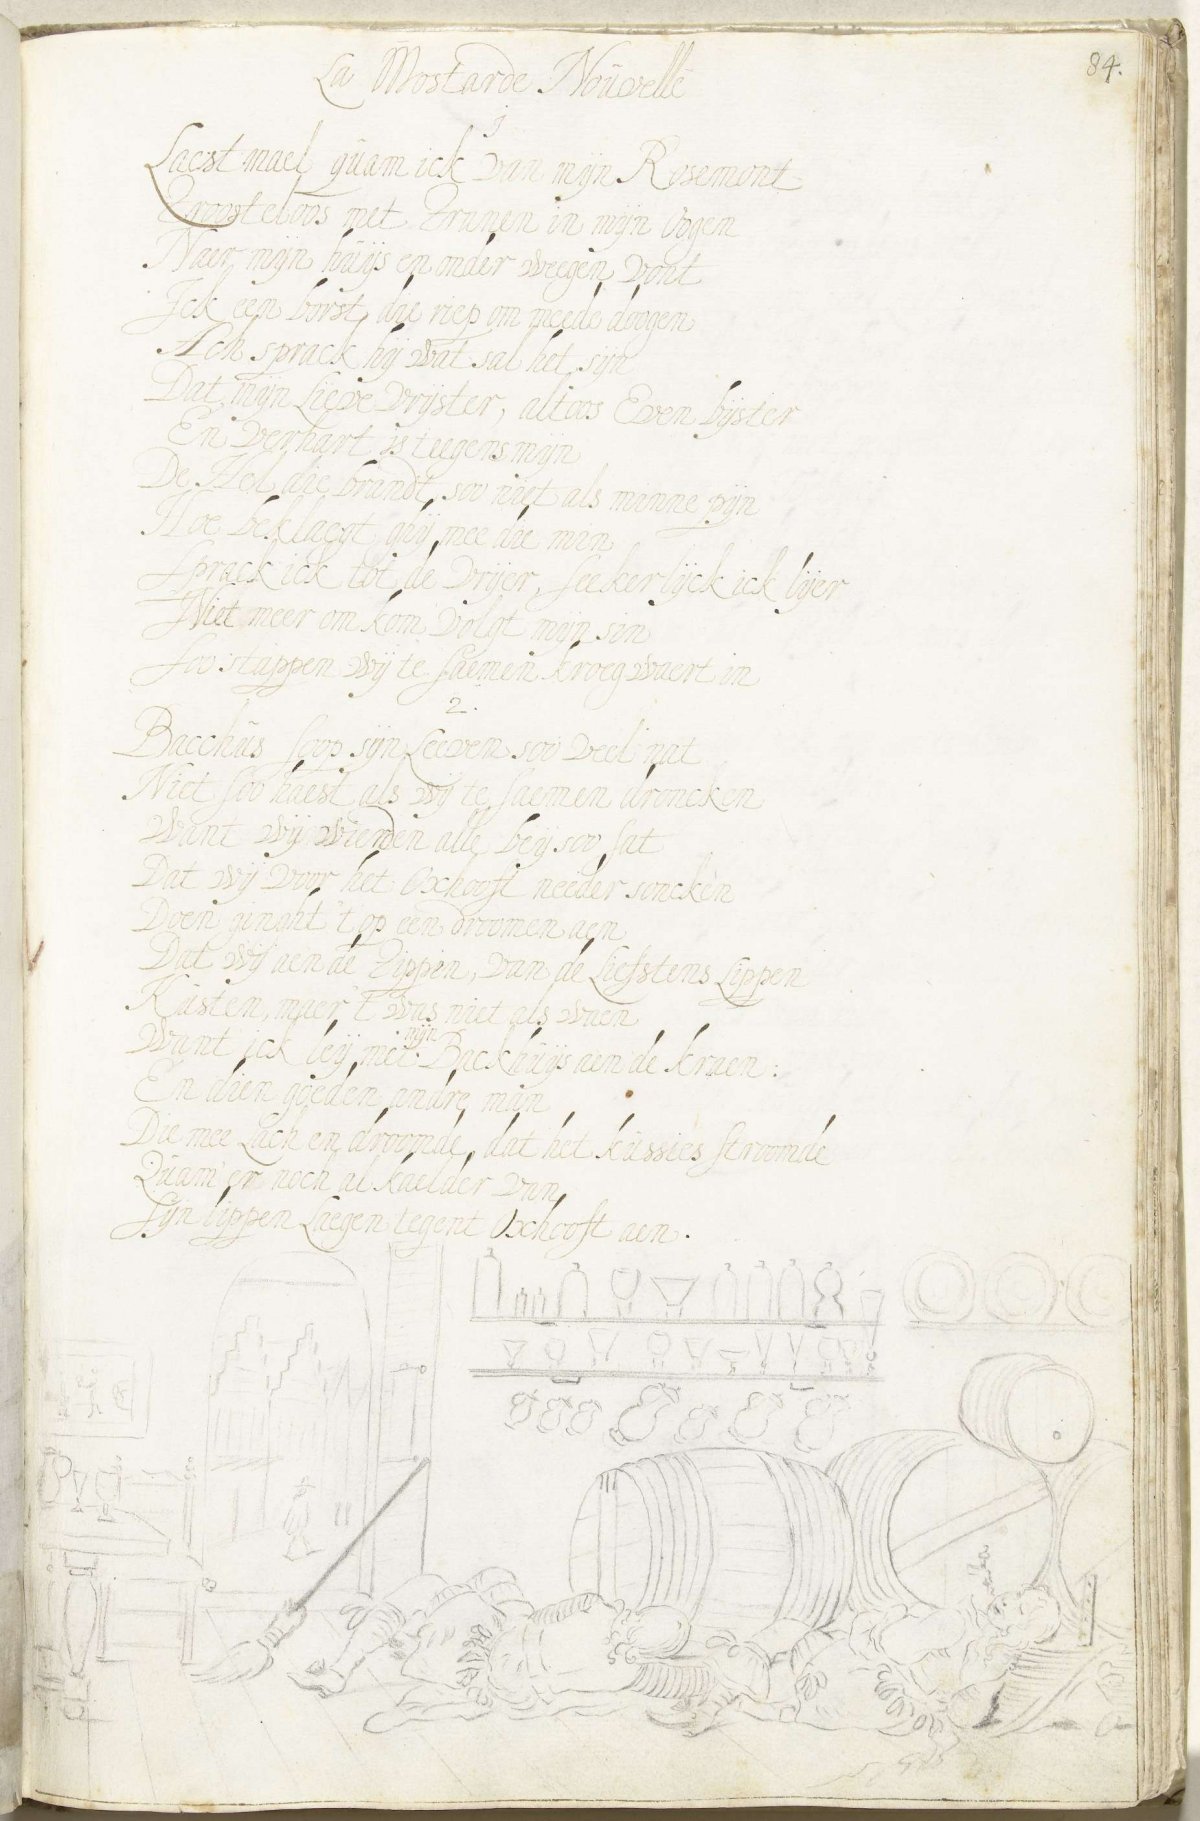 84.
La Mostarde Nouvelle
1
Laest mael quam ick van mijn Rosemont
Troosteloos met Tranen in mijn Oogen
Naer mijn huijs en onder weegen vont
Ick een borst, die riep om meede doogen
Ach sprack hij wat sal het sijn
Dat mijn Lieve Vrijster, altoos Even bijster
En verhart is teegens mijn
De Hel die brandt soo niet als minne pijn
Hoe beklaegt ghij mee die min
Sprack ick tot de Vrijer, seekerlijck ick lijer
Niet meer om kom volgt mijn sin
Soo stappen wij te saemen kroegwaert in
2.
Bacchus soop sijn Leeven soo veel nat
Niet soo haest als wij te saemen droncken
Want wij wierden alle beij soo sat
Dat wij voor het Oxhooft needer soncken
Doen ginght 't op een droomen aen
Dat wij aen de Tippen, van de Liefstens Lippen
Kusten, maer 't was niet als waen
Want ick leij met mijn Backhuijs aen de kraen:
En dien goeden andre man
Die mee Lach en droomde, dat het kussies stroomde
Quam er noch al kaelder van
Sijn lippen Laegen tegent Oxhooft aen.